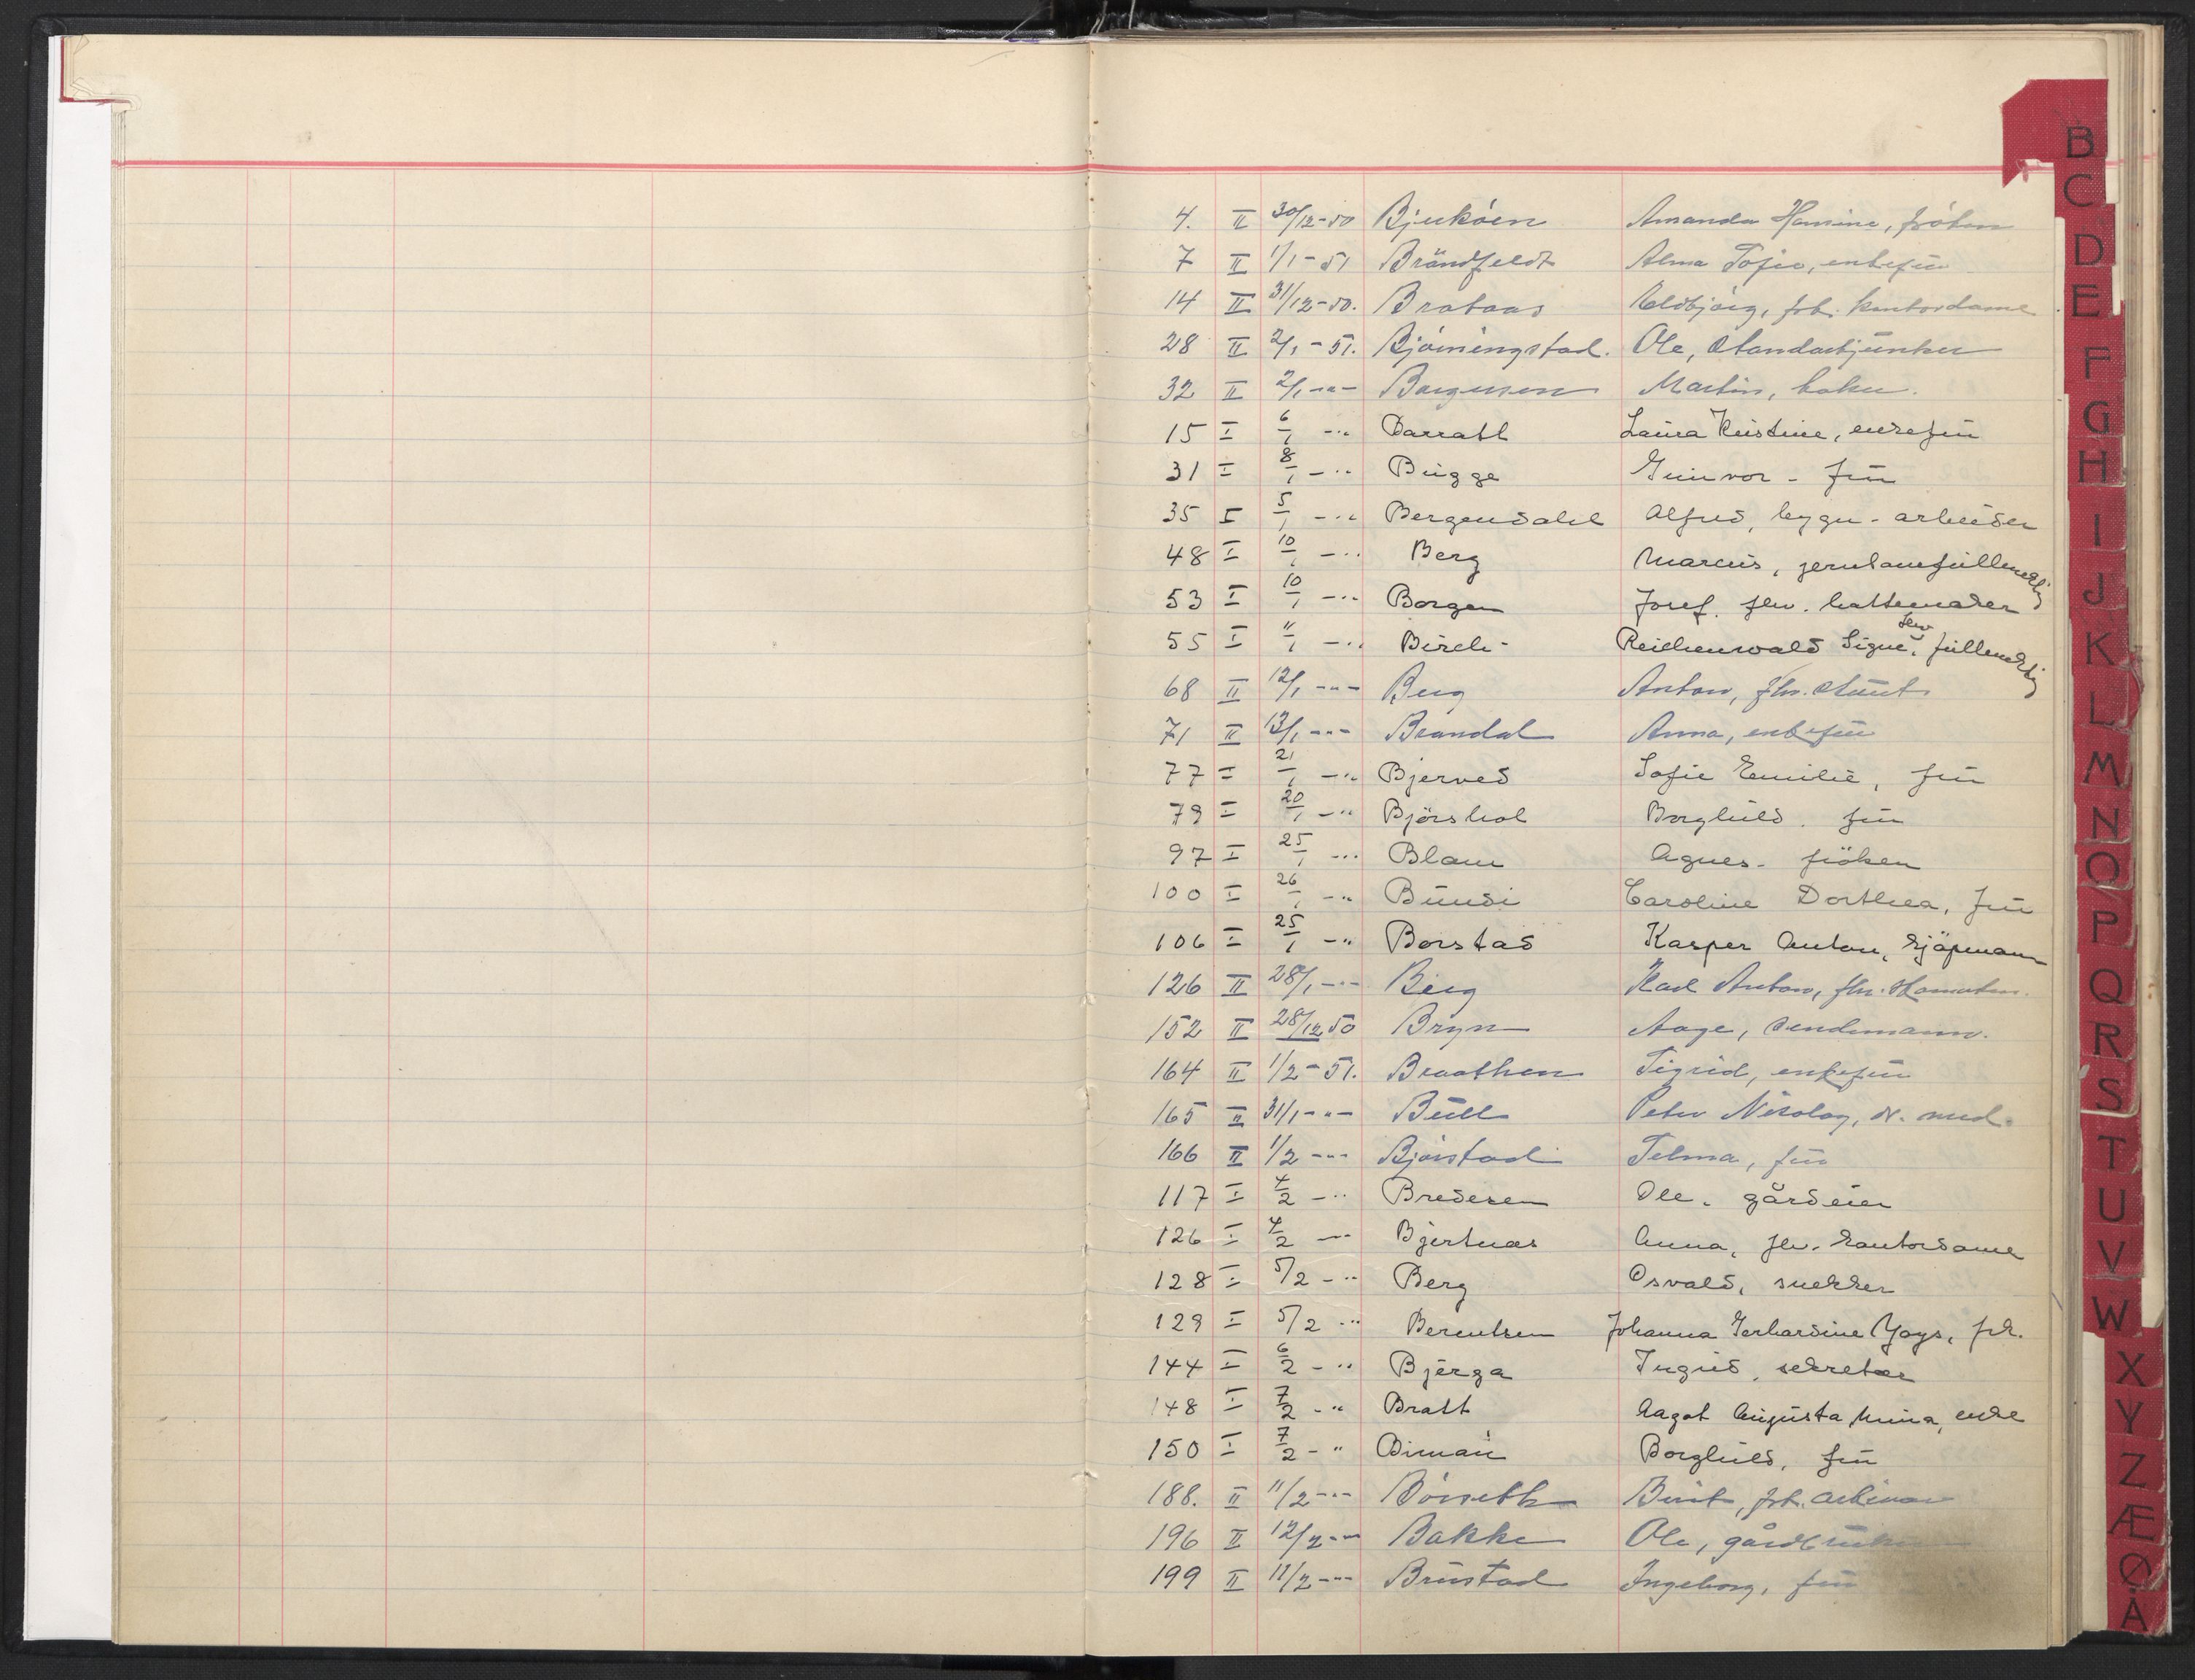 4. II 30/12-50 Bjerkøen Amanda Hansine, frøken
7 II 1/1-51 Brändfeldt Alma Sofie, enkefrü
14 II 31/12-50. Brataas Eldbjørg, frk. kontordame
28 II 2/1-51. Bjørningstad. Ole, Standartjunker
32 II 2/1 -"- Børgersen Martin, baker.
15 I 6/1 -" Barratt Laura Kristine, enkefrü
31 I 8/1 -" Bügge Gunvor - frü
35 I 5/1 -" Bergendahl Alfred, bygn-arbeider
48 I 10/1 -" Berg Marcus, jernbanefullmektig
53 I 10/1 -" Borgen Josef. fhv. hattemaker
55 I 11/1 -" Birch- Reichenwald Signe, fhv fullmektig
68 II 12/1 -"- Berg Anton, fhv.
71 II 13/1 -"- Brandal Anna, enkefrü
77 I 21/1 -" Bjerved Sofie Emilie, frü
79 I 20/1 -" Bjørshol Borghild. frü
97 I 25/1 -" Blam Agnes - frøken
100 I 26/1 -" Bündi Caroline Dorthea, frü
106 I 25/1 -" Borstad Kasper Anton, kjøpmann
126 II 28/1 -"- Berg Karl Anton, fhv.
152 II 28/12 50 Bryn Aage, vendemann.
164 II 1/2-51. Braathen Sigrid, enkefrü
165 II 31/1 -"- Büll Peter Nikolay, dr. med.
166 II 1/2 -"- Bjørstad Telma, frü
117 I 4/2 -" Bredesen Ole. gårdeier
126 I 4/2 -" Bjertnæs Anna, fhv. kontordame
128 I 5/2 -" Berg Osvald, snekker
129 I 5/2 -" Berentsen Johanna Gerhardine Yays, frk.
144 I 6/2 -" Bjerga Ingrid, sekretær
148 I 7/2 -" Bratt Aagot Augusta Mina, enke
150 I 7/2 -" Biman Borghild, frü
188. II 11/2 -"- Børseth Berit, frk. arkivar
196 II 12/2 -"- Bakke Ole, gårdbruker
199 II 11/2 -"- Brüstad Ingeborg, frü
B
C
D
E
F
G
H
I
J
K
L
M
N
O
P
Q
R
S
T
U
V
W
X
Y
Z
Æ
Ø
Å